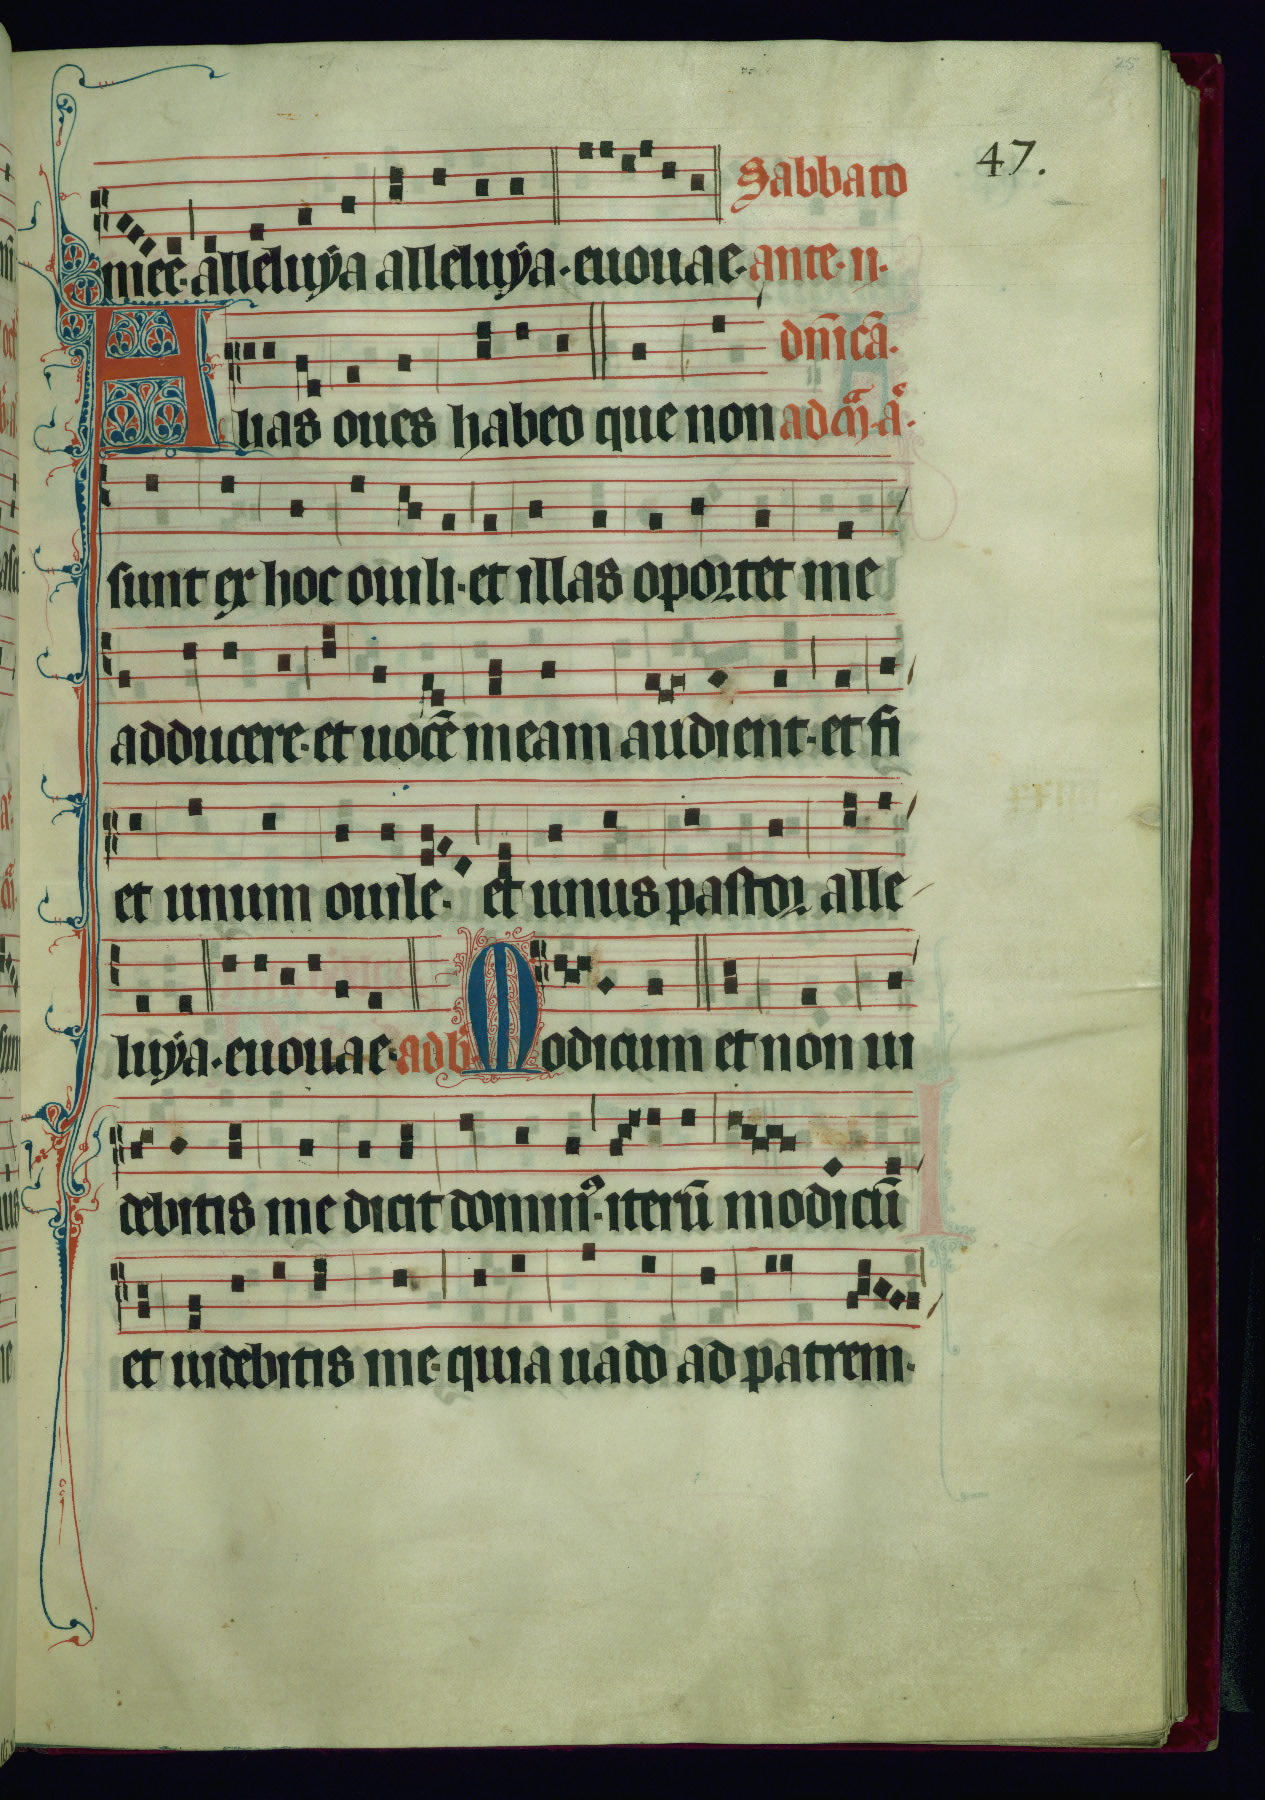 25
47.
Sabbato
mee· alleluẏa alleluẏa· euouae· ante· ii·
dñicā·
Alias oues habeo que non ad
sunt ex hoc ouili· et illas oportet me
adducere· et uocē meam audient· et fi
et unum ouile· et unus pastor alle
luẏa· euouae· ad Modicum et non ui
debitis me dicit domin᷒· iterū modicū
et uidebitis me· quia uado ad patrem·